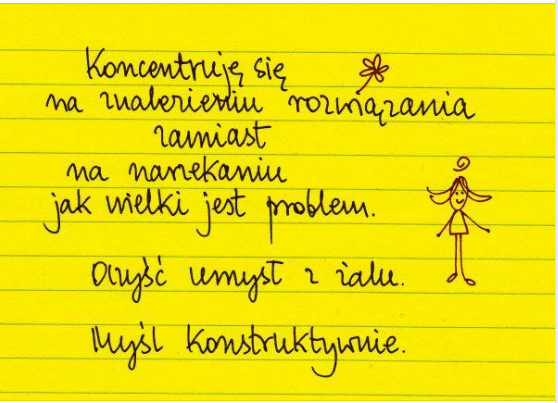 Koncentruję się
na znalezieniu rozwiązania
zamiast
na narzekaniu
jak wielki jest problem.
Oczyść umysł z żalu.
Myśl konstruktywnie.